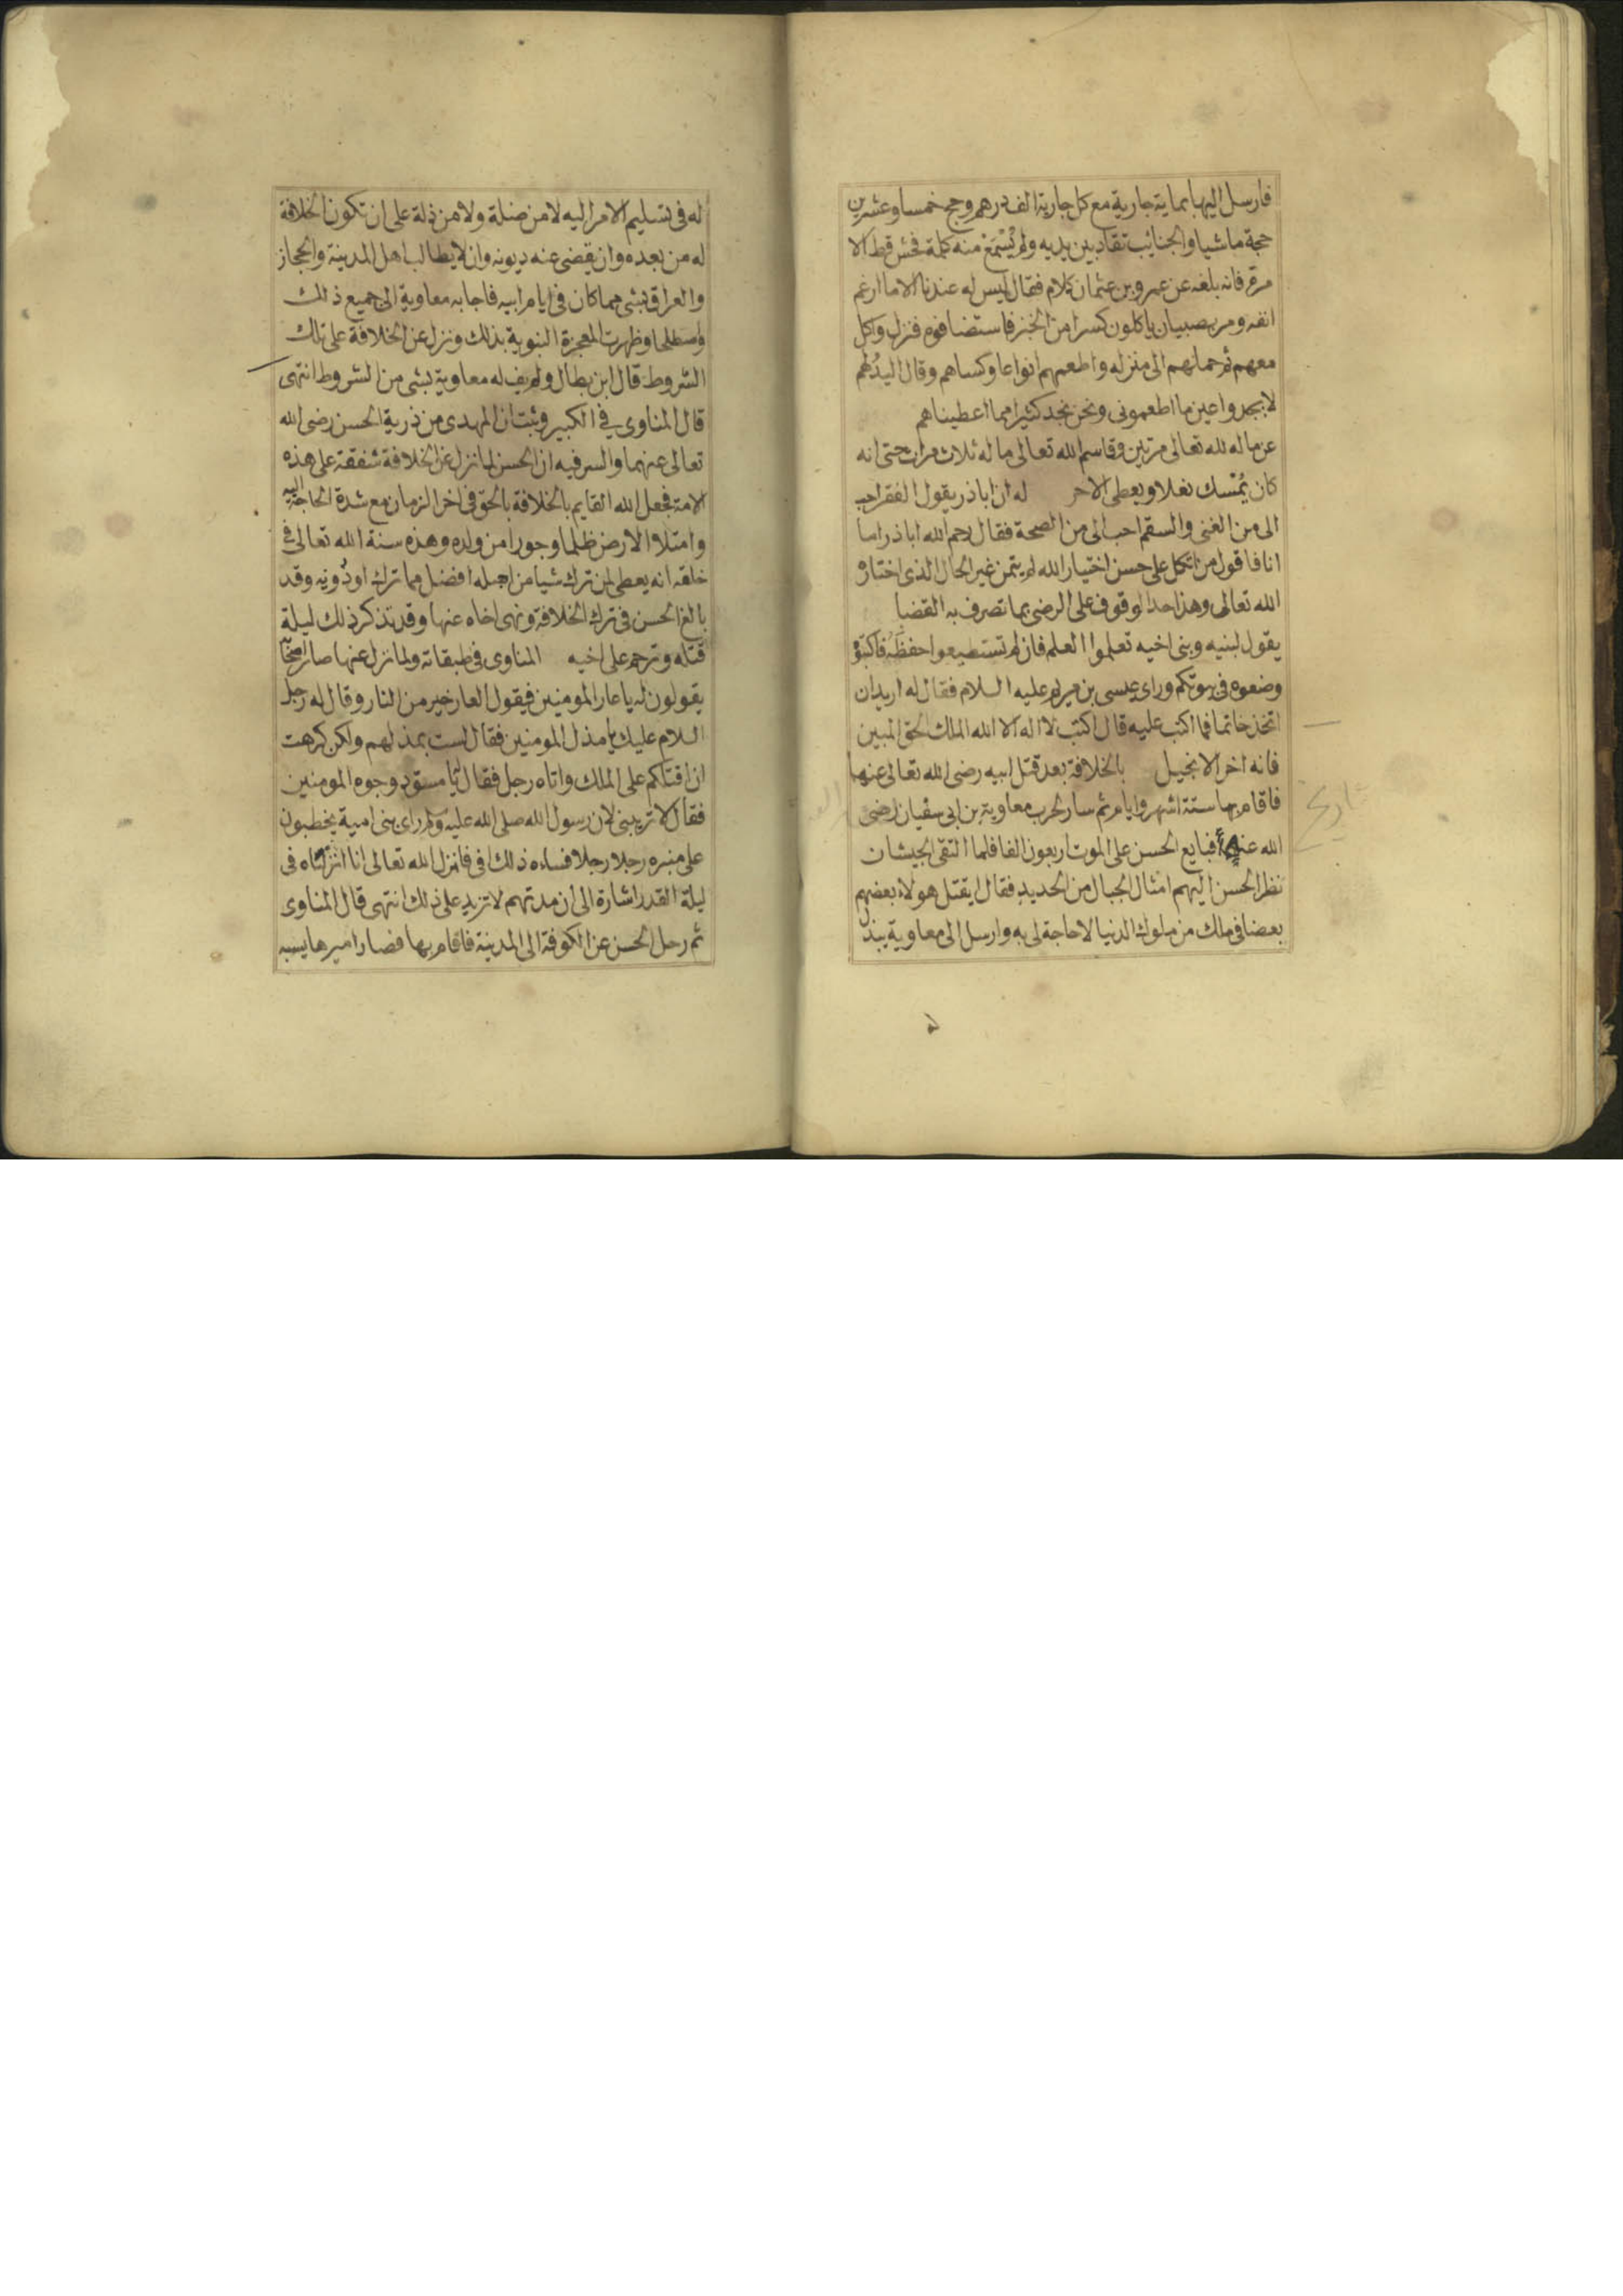 فارسل اليها بماية جارية مع كل جارية الف درهم وحج خمسا وعشرين
حجة ماشيا والجنائب تقاد بين يديه ولم يُسْتَمَعْ منه كلمة فحش قط الا
مرة فانه بلغه عن عمرو بن عثمان كلام فقال ليس له عندنا الا ما ارغم
انفه ومر بصبيان ياكلون كسرا من الخبز فاستضافوه فنزل واكل
معهم ثم حملهم الى منزله واطعمهم انواعا وكساهم وقال اليدُ لهم
لا يجدوا غير ما اطعموني ونحن نجد كثيرا مما اعطيناهم
عن ماله لله تعالى مرتين وقاسم لله تعالى ماله ثلاث مرات حتى انه
كان يُمْسك نعلا ويعطي الاخر له ان اباذر يقول الفقر احب
الى من الغنى والسقم احب الى من الصحة فقال رحم الله اباذر اما
انا فاقول من اتكل على حسن اختيار الله لم يتمن غير الحال الذى اختاره
الله تعالى وهذا حد الوقوف على الرضى بما تصرف به القضا
يقول لبنيه وبنى اخيه تعلموا العلم فان لم تستطيعوا حفظهُ فاكتبوه
وضعوه فى بيوتكم وراى عيسى بن مريم عليه السلام فقال له اريد ان
اتخذ خاتما فما اكتب عليه قال اكتب لا اله الا الله الملك الحق المبين
فانه اخر الانجيل بالخلافة بعد قتل ابيه رضى الله تعالى عنهما
فاقام بها ستة اشهر وايام ثم سار لحرب معاوية بن ابى سفيان رضى
تاريخ
الله عنه فبايع الحسن على الموت اربعون الفا فلما التقى الجيشان
نظر الحسن اليهم امثال الجبال من الحديد فقال ايقتل هولاء بعضهم
بعضا فى ملك من ملوك الدنيا لا حاجة لى به وارسل الى معاوية يبذل
له فى تسليم الامر اليه لا من ضلة ولا من ذلة على ان تكون الخلافة
له من بعده وان يقضى عنه ديونه وان لا يطالب اهل المدينة والحجاز
والعراق بشى مما كان فى ايام ابيه فاجابه معاوية الى جميع ذلك
واصطلحا وظهرت المعجزة النبوية بذلك ونزل عن الخلافة على تلك
الشروط قال ابن بطال ولم يف له معاوية بشى من الشروط انتهى
قال المناوى في الكبير وثبت ان المهدى من ذرية الحسن رضى الله
تعالى عنهما والسر فيه ان الحسن لما نزل عن الخلافة شفقة على هذه
الامة فجعل الله القايم بالخلافة بالحق فى اخر الزمان مع شدة الحاجة اليه
وامتلاا الارض ظلما وجورا من ولده وهذه سنة الله تعالى فى
خلقه انه يعطى لمن ترك شيا من اجله افضل مما ترك او دُونه وقد
بالغ الحسن فى ترك الخلافة ونهى اخاه عنها وقد تذكر ذلك ليلة
قتله وترحم على اخيه المناوى فى طبقاته ولما نزل عنها صار اصحابه
يقولون له يا عار المومنين فيقول العار خير من النار وقال له رجل
السلام عليك يا مذل المومنين فقال لست بمذلهم ولكن كرهت
ان اقتلكم على الملك واتاه رجل فقال يا مسوّد وجوه المومنين
فقال لا تربنى لان رسول الله صلى الله عليه وسلم راى بنى امية يخطبون
على منبره رجلا رجلا فساءه ذلك فانزل الله تعالى انا انزلناه فى
ليلة القدر اشارة الى ان مدتهم لا تزيد على ذلك انتهى قال المناوى
ثم رحل الحسن عن الكوفة الى المدينة فاقام بها فصار اميرها يسبه